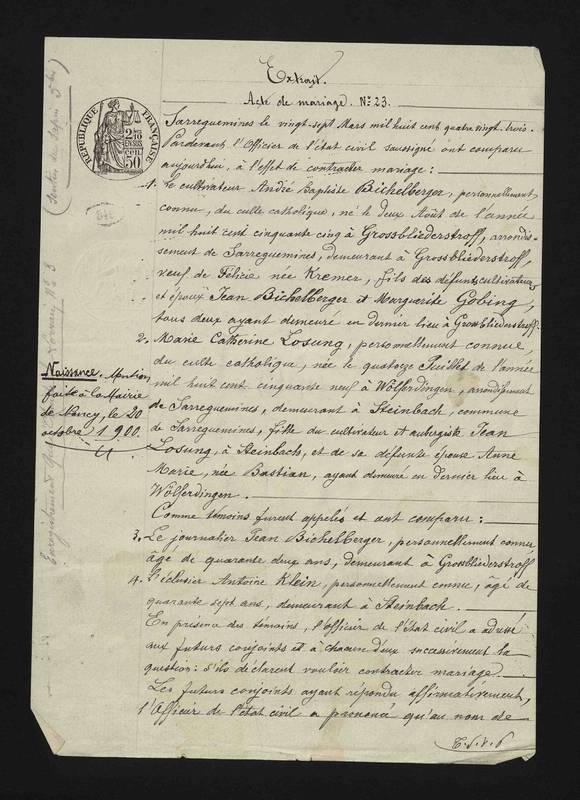 Extrait.
Acte de mariage. No 23.
Sarreguemines le vingt-sept Mars mil huit cent quatre vingt-trois.
Pardevant l'Officier de l'état civil soussigné ont comparu
aujourd'hui, à l'effet de contracter mariage :
1. Le cultivateur André Baptiste Bichelberger, personnellement
connu, du culte catholique, né le deux Août de l'année
mil huit cent cinquante cinq à Grossbliederstroff, arrondis-
sement de Sarreguemines, demeurant à Grossbliederstroff,
veuf de Félicie née Kremer, fils des défunts cultivateurs
et époux Jean Bichelberger et Marguerite Gobing,
tous deux ayant demeuré en dernier lieu à Grossbliederstroff.
2. Marie Catherine Losung, personnellement connue,
du culte catholique, née le quatorze Juillet de l'année
mil huit cent cinquante neuf à Wölferdingen, arrondissement
de Sarreguemines, demeurant à Steinbach, commune
de Sarreguemines, fille du cultivateur et aubergiste Jean
Losung, à Steinbach, et de sa défunte épouse Anne
Marie, née Bastian, ayant demeuré en dernier lieu à
Wölferdingen.
Comme témoins furent appelés et ont comparu :
3. Le journalier Jean Bichelberger, personnellement connu
âgé de quarante deux ans, demeurant à Grossbliederstroff
4. L'éclusier Antoine Klein, personnellement connu, âgé de
quarante sept ans, demeurant à Steinbach.
En présence des témoins, l'officier de l'état civil a adressé
aux futurs conjoints et à chacun d'eux successivement la
question : S'ils déclarent vouloir contracter mariage.
Les futurs conjoints ayant répondu affirmativement,
l'Officier de l'état civil a prononcé qu'au nom de
T.s.v.p
Naissance. Mention
faite à la Mairie
de Nancy, le 20
octobre 1900.
RÉPUBLIQUE FRANÇAISE
2/10 EN SUS
50 CENT